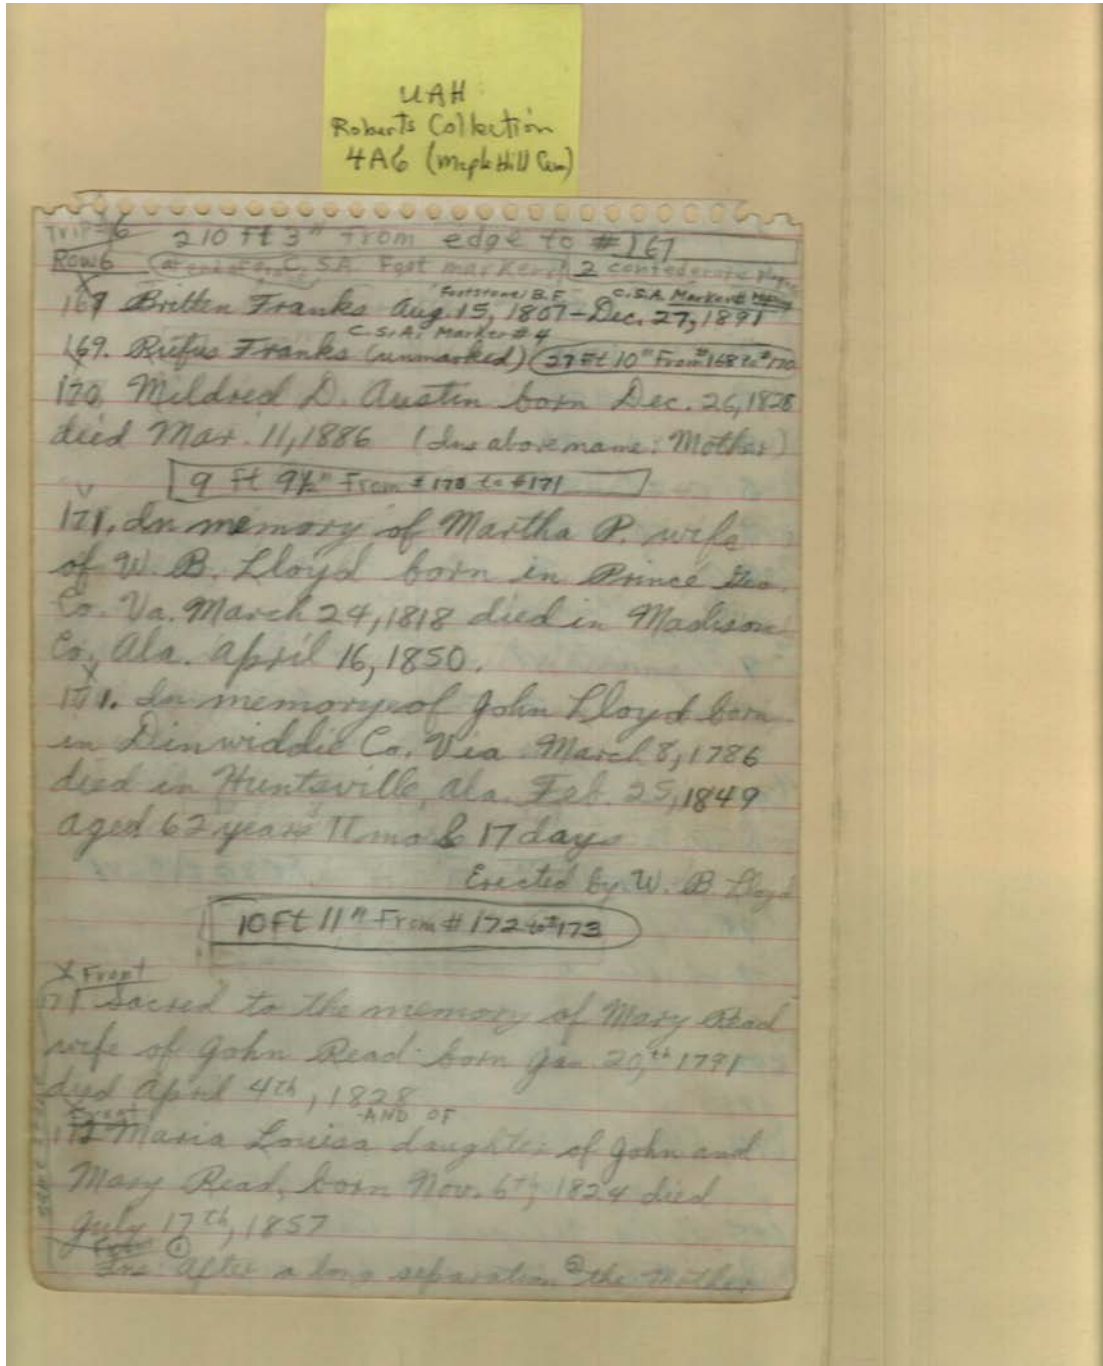 UAH
Roberts Collection
4A6 (Maple Hill Cem)
Trip-6 210 ft 3" from edge to #167
Row 6 C.S.A. Foot marker 2 confederate
Footstone: B.F C.S.A. Marker#
167 Britten Franks Aug. 15, 1807-Dec. 27, 1891
C.S.A. Marker #4
169. Rufus Franks (unmarked) 27 Ft 10" From #168 to #170
170, Mildred D. Austin born Dec. 26, 1828
died Mar. 11, 1886 (Ins above name: Mother)
9 ft 9½" From #170 to #171
171. In memory of Martha P. wife
of W. B. Lloyd born in Prince Geo.
Co. Va. March 24, 1818 died in Madison
Co, Ala. April 16, 1850.
171. In memory of John Lloyd born
in Dinwiddie Co. Via. March 8, 1786
died in Huntsville, Ala. Feb. 25, 1849
aged 62 years 11 mo & 17 days
Erected by W. B. Lloyd
10 Ft 11" From #172 to #173
X Front
171 Sacred to the memory of Mary Read
wife of John Read born Jan 20,th 1791
died April 4th, 1828
Front AND OF
172 Maria Louisa daughter of John and
Mary Read, born Nov. 6th, 1824 died
July 17th, 1857
Ins ① After a long separation ② the Mother